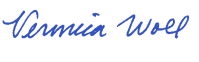 Veronica Woll